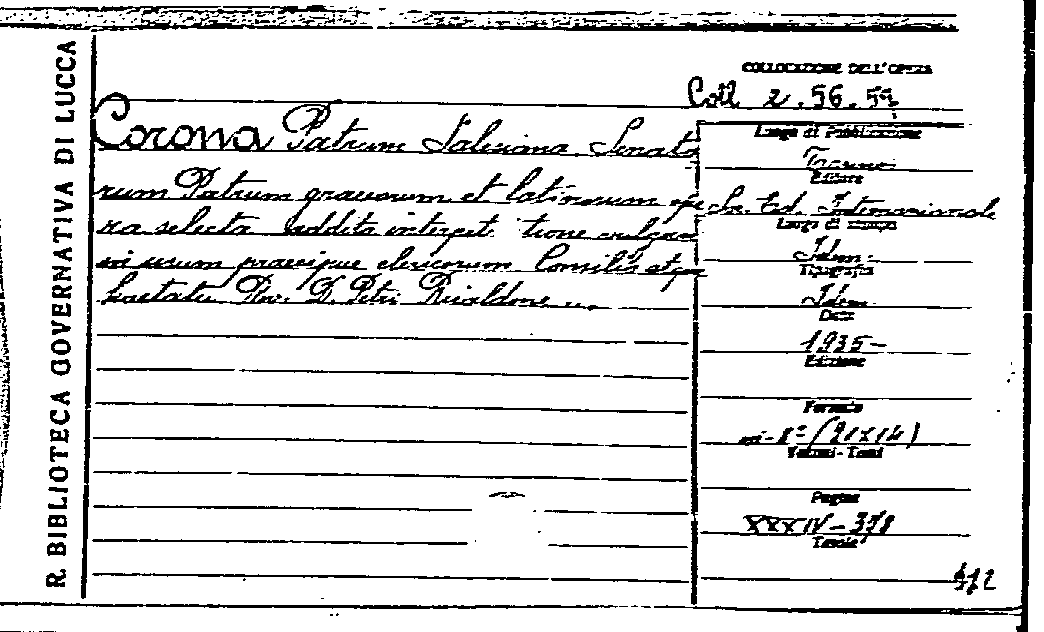 R. BIBLIOTECA GOVERNATIVA DI LUCCA
COLLOCAZIONE DELL'OPERA
Coll 2.56.
Corona Patrum Salesiana. Senato
rum Patrum graecorum et latinorum ope
ra selecta addita interpet tione vulgari
in usum praecipue clericorum Consiliis atque
hortatu Rev. D. Petri Ricaldone
Luogo di Pubblicazione
Torino
Editore
So. Ed. Internazionale
Luogo di stampa
Idem
Tipografia
Idem
Data
1935-
Edizione
Formato
in-8º (21x14)
Volumi-Tomi
Pagine
XXXIV-378
Tavole